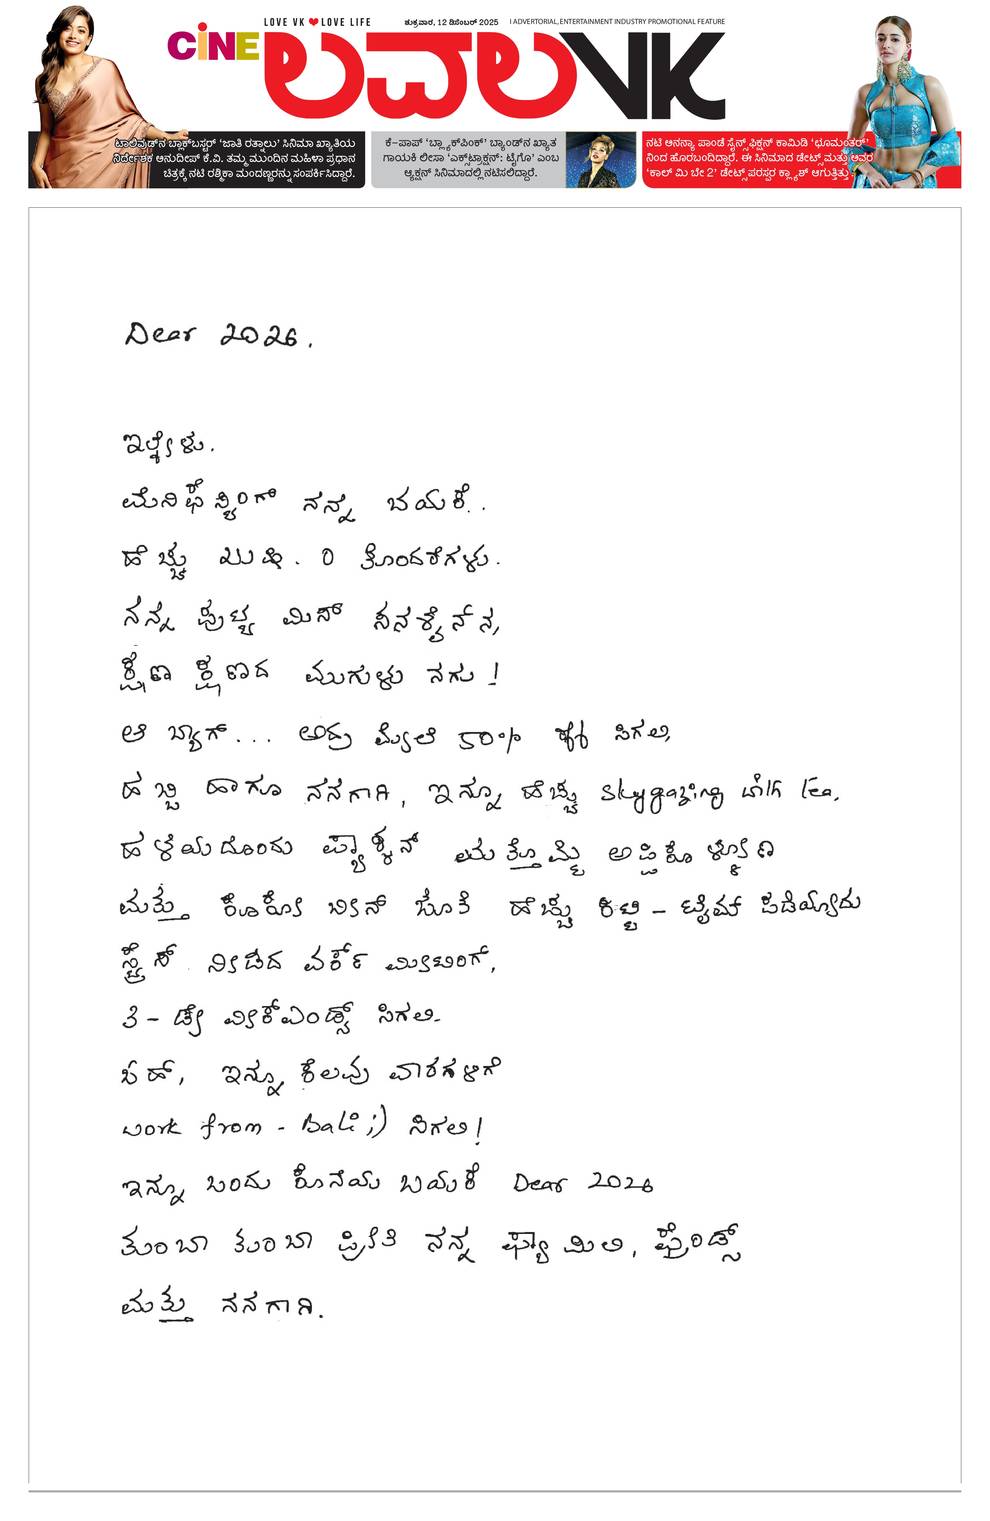 LOVE VK ❤ LOVE LIFE
ಶುಕ್ರವಾರ, 12 ಡಿಸೆಂಬರ್ 2025 | ADVERTORIAL, ENTERTAINMENT INDUSTRY PROMOTIONAL FEATURE
CINE ಲವಲVK
ಟಾಲಿವುಡ್‌ನ ಬ್ಲಾಕ್‌ಬಸ್ಟರ್ 'ಜಾತಿ ರತ್ನಾಲು' ಸಿನಿಮಾ ಖ್ಯಾತಿಯ
ನಿರ್ದೇಶಕ ಅನುದೀಪ್ ಕೆ.ವಿ. ತಮ್ಮ ಮುಂದಿನ ಮಹಿಳಾ ಪ್ರಧಾನ
ಚಿತ್ರಕ್ಕೆ ನಟಿ ರಶ್ಮಿಕಾ ಮಂದಣ್ಣರನ್ನು ಸಂಪರ್ಕಿಸಿದ್ದಾರೆ.
ಕೆ-ಪಾಪ್ 'ಬ್ಲ್ಯಾಕ್‌ಪಿಂಕ್' ಬ್ಯಾಂಡ್‌ನ ಖ್ಯಾತ
ಗಾಯಕಿ ಲೀಸಾ 'ಎಕ್ಸ್‌ಟ್ರಾಕ್ಷನ್: ಟೈಗೊ' ಎಂಬ
ಆ್ಯಕ್ಷನ್ ಸಿನಿಮಾದಲ್ಲಿ ನಟಿಸಲಿದ್ದಾರೆ.
ನಟಿ ಅನನ್ಯಾ ಪಾಂಡೆ ಸೈನ್ಸ್ ಫಿಕ್ಷನ್ ಕಾಮಿಡಿ 'ಛೂಮಂತರ್'
ನಿಂದ ಹೊರಬಂದಿದ್ದಾರೆ. ಈ ಸಿನಿಮಾದ ಡೇಟ್ಸ್ ಮತ್ತು ಅವರ
'ಕಾಲ್ ಮಿ ಬೇ 2' ಡೇಟ್ಸ್ ಪರಸ್ಪರ ಕ್ಲ್ಯಾಶ್ ಆಗುತ್ತಿತ್ತು.
Dear 2026.
ಇಲ್ಕೇಳು.
ಮೆನಿಫೆಸ್ಟಿಂಗ್ ನನ್ನ ಬಯಕೆ.
ಹೆಚ್ಚು ಖುಷಿ. 0 ತೊಂದರೆಗಳು.
ನನ್ನ ಪುಟ್ಟ ಮಿಸ್ ಸನಶೈನ್‌ನ,
ಕ್ಷಣ ಕ್ಷಣದ ಮುಗುಳು ನಗು!
ಆ ಬ್ಯಾಗ್... ಅದ್ರು ಮ್ಯಲೆ 50% ಸಿಗಲಿ,
ಹಬ್ಬಿ ಹಾಗೂ ನನಗಾಗಿ, ಇನ್ನೂ ಹೆಚ್ಚು skygazing with tea.
ಹಳೆಯದೊಂದು ಪ್ಯಾಶನ್ ಮತ್ತೊಮ್ಮೆ ಅಪ್ಪಿಕೊಳ್ಳೋಣ
ಮತ್ತು ಕೊಕೊ ಬೀನ್ ಜೊತೆ ಹೆಚ್ಚು ಕಿಟ್ಟಿ - ಟೈಮ್ ಪಡೆಯ್ಯೋದು
ಸ್ಟ್ರೆಸ್ ನೀಡದ ವರ್ಕ್ ಮೀಟಿಂಗ್,
3 - ಡೇ ವೀಕ್ಎಂಡ್ಸ್ ಸಿಗಲಿ.
ಓಹ್, ಇನ್ನೂ ಕೆಲವು ವಾರಗಳಿಗೆ
work from - Bali ;) ಸಿಗಲಿ!
ಇನ್ನೂ ಒಂದು ಕೊನೆಯ ಬಯಕೆ Dear 2026
ತುಂಬಾ ತುಂಬಾ ಪ್ರೀತಿ ನನ್ನ ಫ್ಯಾಮಿಲಿ, ಫ್ರೆಂಡ್ಸ್
ಮತ್ತು ನನಗಾಗಿ.